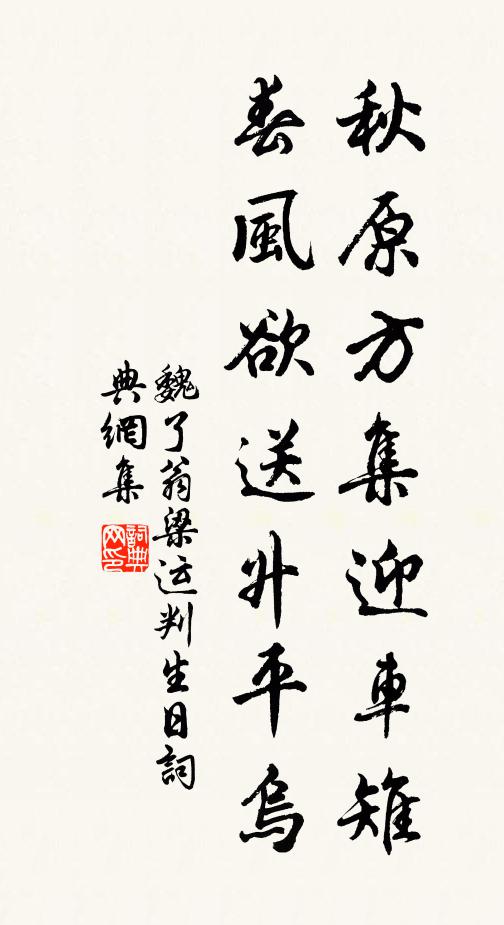 秋原方集迎車雉
春風欲送升平烏
魏了翁梁运判生日詞
典網集
詞典网印